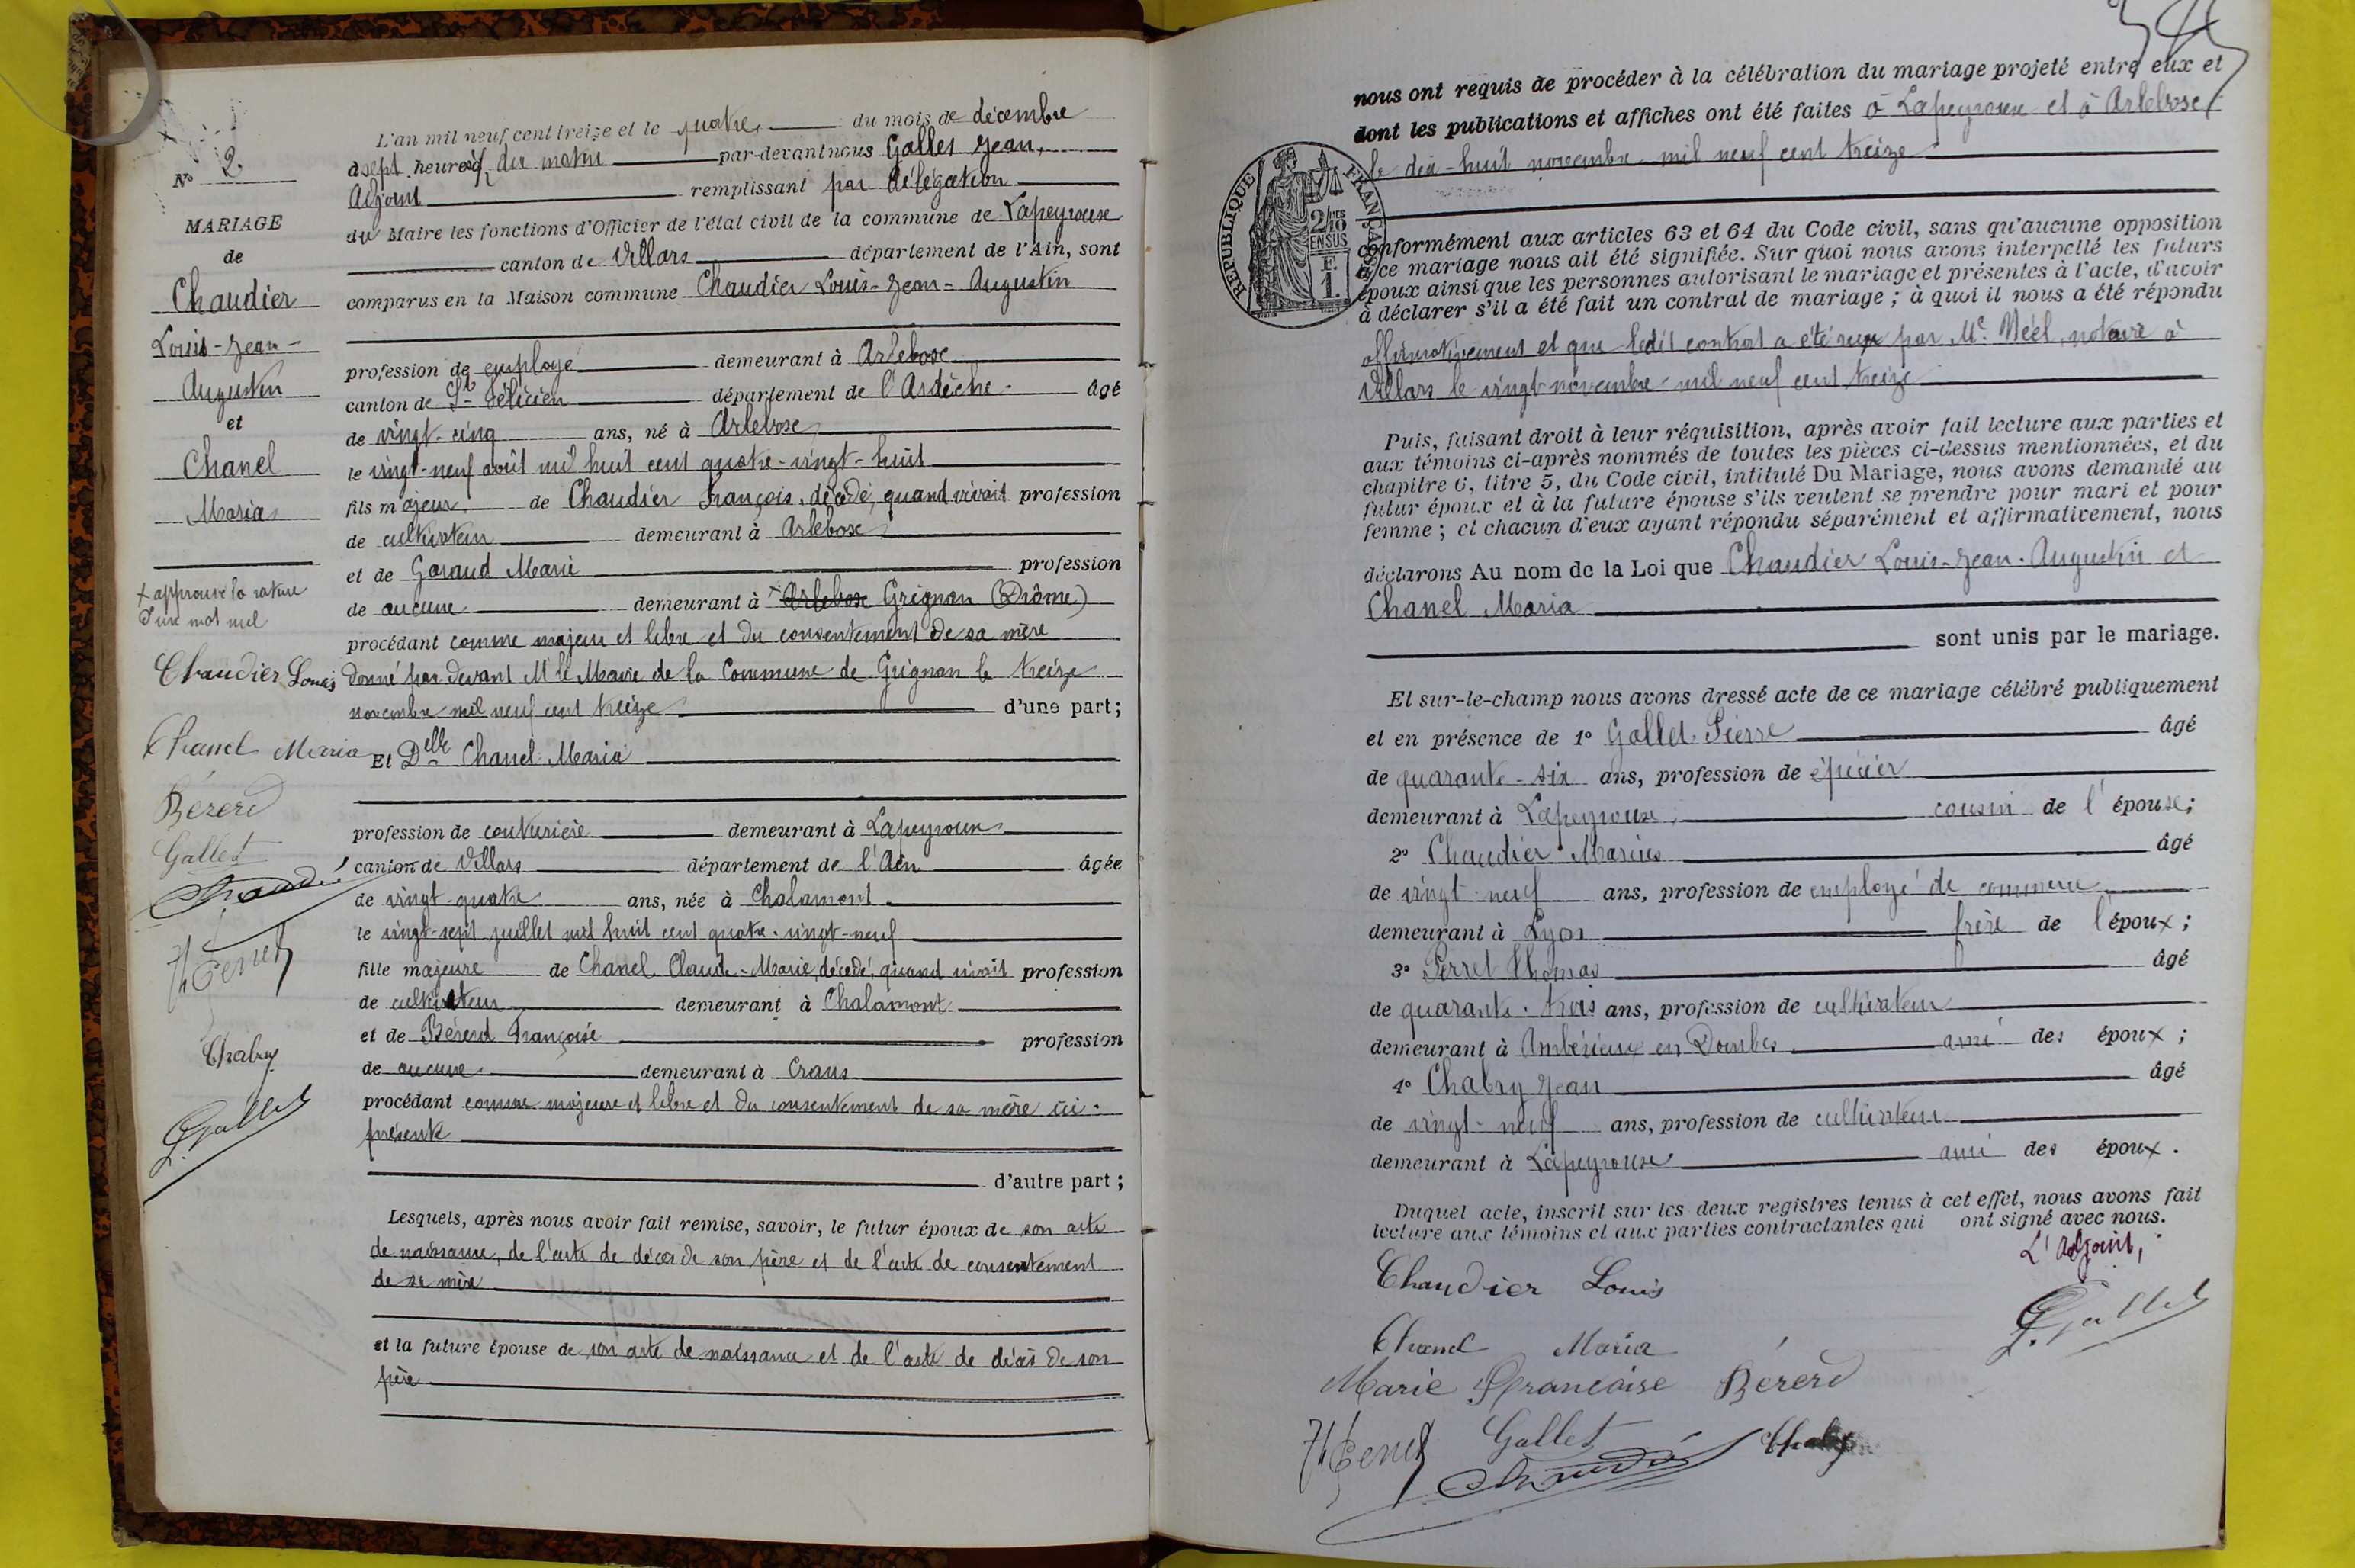 N° 2
MARIAGE
de
Chaudier
Louis-Jean-
Augustin
et
Chanel
Maria
+ approuvé la rature
d'un mot nul
Chaudier Louis
Chanel Maria
Bérérd
Gallet
Chaudier
Th Perret
Chabry
J. Gallet
L'an mil neuf cent treize et le quatre du mois de décembre
à sept heures du matin par-devant nous Gallet Jean,
Adjoint remplissant par délégation
du Maire les fonctions d'Officier de l'état civil de la commune de Lapeyrouse
canton de Villars département de l'Ain, sont
comparus en la Maison commune Chaudier Louis-Jean-Augustin
profession de employé demeurant à Arlebosc
canton de St Félicien département de l'Ardèche âgé
de vingt-cinq ans, né à Arlebosc
le vingt-neuf août mil huit cent quatre-vingt-huit
fils majeur de Chaudier François, décédé, quand vivait profession
de cultivateur demeurant à Arlebosc
et de Garaud Marie profession
de aucune demeurant à + Arlebosc Grignan (Drôme)
procédant comme majeur et libre et du consentement de sa mère
donné par devant M le Maire de la Commune de Grignan le treize
novembre mil neuf cent treize d'une part;
Et Delle Chanel Maria
profession de couturière demeurant à Lapeyrouse
canton de Villars département de l'Ain âgée
de vingt-quatre ans, née à Chalamont
le vingt-sept juillet mil huit cent quatre-vingt-neuf
fille majeure de Chanel Claude-Marie, décédé, quand vivait profession
de cultivateur demeurant à Chalamont
et de Bérérd Françoise profession
de aucune demeurant à Crans
procédant comme majeure et libre et du consentement de sa mère ici-
présente
d'autre part;
Lesquels, après nous avoir fait remise, savoir, le futur époux de son acte
de naissance, de l'acte de décès de son père et de l'acte de consentement
de sa mère
et la future épouse de son acte de naissance et de l'acte de décès de son
père
nous ont requis de procéder à la célébration du mariage projeté entre eux et
dont les publications et affiches ont été faites à Lapeyrouse et à Arlebosc
le dix-huit novembre mil neuf cent treize
RÉPUBLIQUE FRANÇAISE
2/10
EN SUS
F.
1.
conformément aux articles 63 et 64 du Code civil, sans qu'aucune opposition
à ce mariage nous ait été signifiée. Sur quoi nous avons interpellé les futurs
époux ainsi que les personnes autorisant le mariage et présentes à l'acte, d'avoir
à déclarer s'il a été fait un contrat de mariage; à quoi il nous a été répondu
affirmativement et que ledit contrat a été reçu par Me Méel, notaire à
Villars le vingt novembre mil neuf cent treize
Puis, faisant droit à leur réquisition, après avoir fait lecture aux parties et
aux témoins ci-après nommés de toutes les pièces ci-dessus mentionnées, et du
chapitre 6, titre 5, du Code civil, intitulé Du Mariage, nous avons demandé au
futur époux et à la future épouse s'ils veulent se prendre pour mari et pour
femme; et chacun d'eux ayant répondu séparément et affirmativement, nous
déclarons Au nom de la Loi que Chaudier Louis-Jean-Augustin et
Chanel Maria
sont unis par le mariage.
Et sur-le-champ nous avons dressé acte de ce mariage célébré publiquement
et en présence de 1° Gallet Pierre âgé
de quarante-six ans, profession de épicier
demeurant à Lapeyrouse, cousin de l'épouse;
2° Chaudier Marius âgé
de vingt-neuf ans, profession de employé de commerce
demeurant à Lyon frère de l'époux;
3° Perret Thomas âgé
de quarante-trois ans, profession de cultivateur
demeurant à Ambérieux en Dombes ami des époux;
4° Chabry Jean âgé
de vingt-neuf ans, profession de cultivateur
demeurant à Lapeyrouse ami des époux.
Duquel acte, inscrit sur les deux registres tenus à cet effet, nous avons fait
lecture aux témoins et aux parties contractantes qui ont signé avec nous.
L'Adjoint,
Chaudier Louis
J. Gallet
Chanel Maria
Marie Francoise Bérérd
Th Perret Gallet Chabry
Chaudier